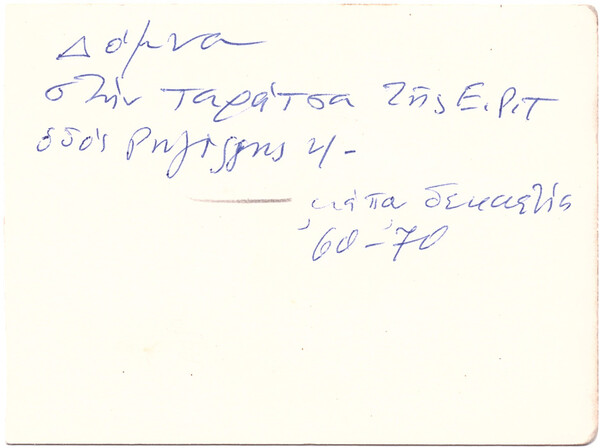 Δόμνα
στήν ταράτσα τῆς Ε.Ρ.Τ
ὁδός Ρηγίλλης 4 -
δεκαετία
'60-'70